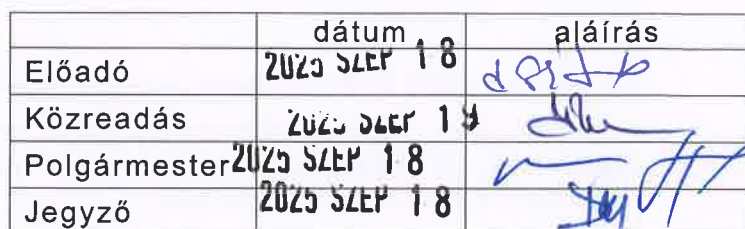 dátum aláírás
Előadó 2025 SZEP 18
Közreadás 2025 SZEP
Polgármester 2025 SZEP 18
Jegyző 2025 SZEP 18